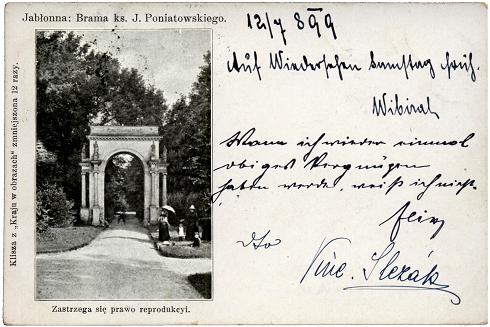 Jabłonna: Brama ks. J. Poniatowskiego.
Klisza z „Kraju w obrazach" zmniejszona 12 razy.
Zastrzega się prawo reprodukcyi.
12/7 899
Auf Wiedersehen Samstag früh.
Wibiral
Wann ich wieder einmal
obiges Vergnügen
haben werde, weiß ich nicht.
dto
Vinc. Slezák